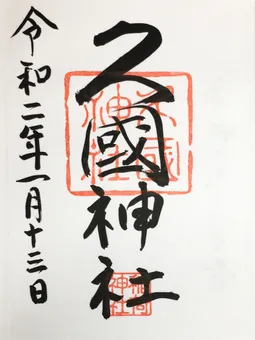 久國神社
令和二年一月十三日